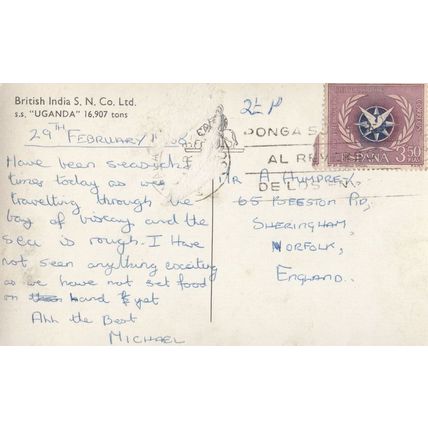 British India S. N. Co. Ltd.
s.s. "UGANDA" 16,907 tons
29TH FEBRUARY
Have been seasick
times today as we
travelling through the
bay of biscay and the
sea is rough. I Have
not seen anything exciting
as we have not set food
on land yet
All the Best
MICHAEL
PONGA
AL REM
DE LOS EN
ESPAÑA 3,50 PTAS
MR A HUMPREY,
65 BEESTON RD,
SHERINGHAM,
NORFOLK,
ENGLAND.